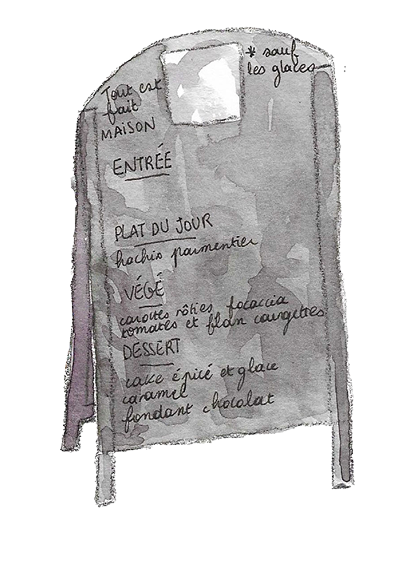 Tout est
fait
MAISON
* sauf
les glaces
ENTRÉE
PLAT DU JOUR
hachis parmentier
VÉGÉ
carottes rôties focaccia
tomates et flan courgettes
DESSERT
cake épicé et glace
caramel
fondant chocolat